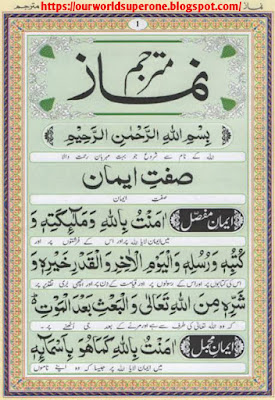 نماز https://ourworldsuperone.blogspot.com/ مترجم
1
نماز مترجم
بِسْمِ اللهِ الرَّحْمٰنِ الرَّحِيْمِ
اللہ کے نام سے شروع جو بہت مہربان رحمت والا
صفتِ ایمان
صفت ایمان
ایمان مفصّل اٰمَنْتُ بِاللهِ وَمَلٰٓئِكَتِهٖ وَ
میں ایمان لایا اللہ پر اور اس کے فرشتوں پر اور
كُتُبِهٖ وَرُسُلِهٖ وَالْيَوْمِ الْاٰخِرِ وَالْقَدْرِ خَيْرِهٖ وَ
اس کی کتابوں پر اور اس کے رسولوں پر اور قیامت کے دن پر اور اچھی بری تقدیر پر
شَرِّهٖ مِنَ اللهِ تَعَالٰى وَالْبَعْثِ بَعْدَ الْمَوْتِ
کہ وہ اللہ تعالیٰ کی طرف سے ہے اور مرنے کے بعد جی اٹھنے پر
ایمان مجمل اٰمَنْتُ بِاللهِ كَمَا هُوَ بِاَسْمَآئِهٖ
میں ایمان لایا اللہ پر جیسا کہ وہ اپنے ناموں